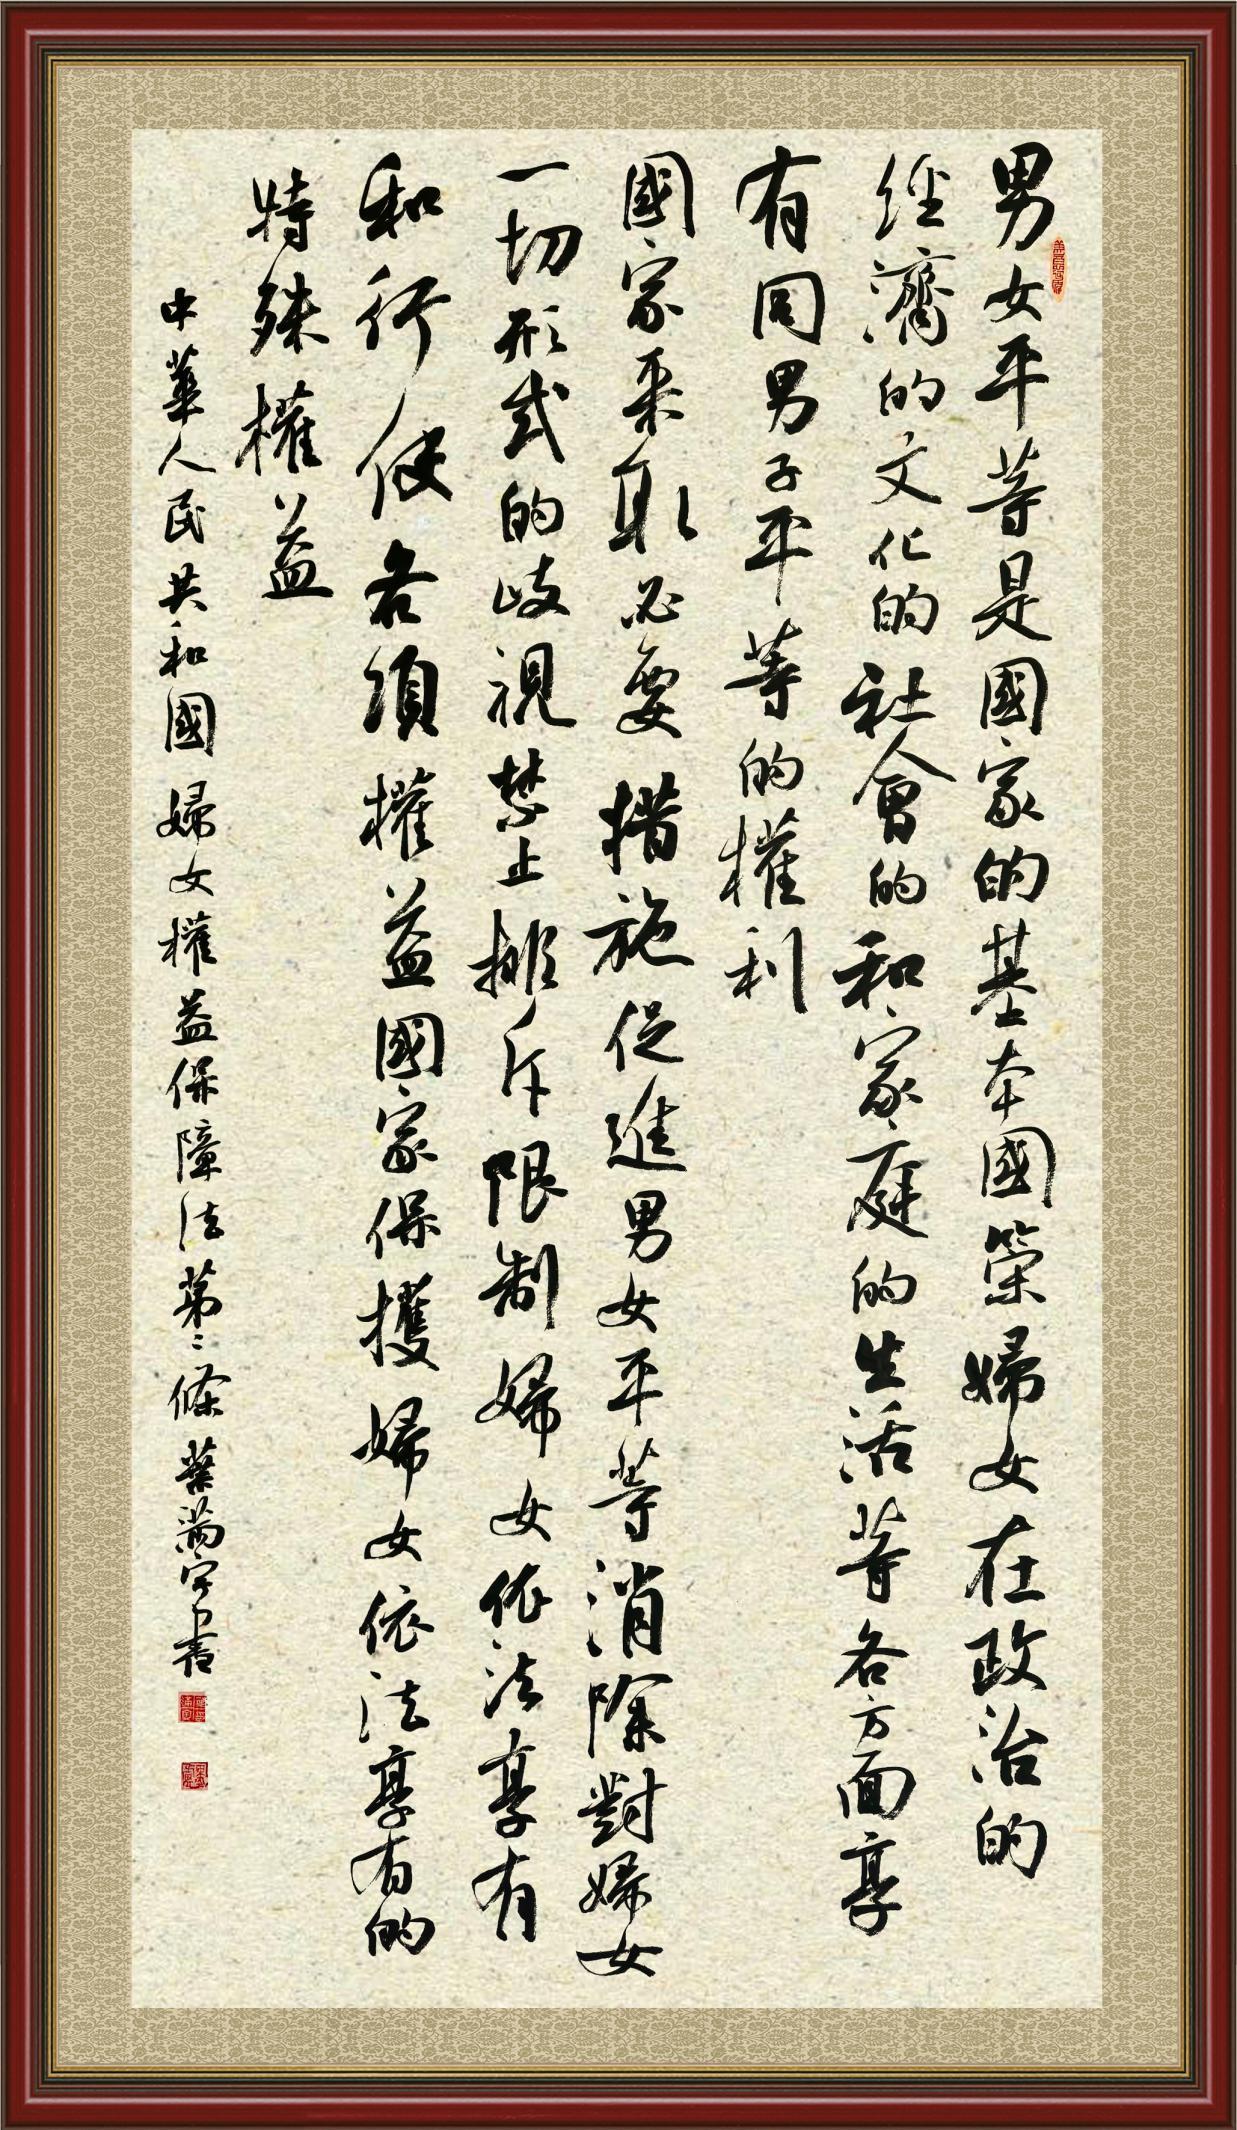 男女平等是國家的基本國策婦女在政治的
經濟的文化的社會的和家庭的生活等各方面享
有同男子平等的權利
國家采取必要措施促進男女平等消除對婦女
一切形式的歧視禁止排斥限制婦女依法享有
和行使各項權益國家保護婦女依法享有的
特殊權益
中華人民共和國婦女權益保障法第二條葉滿字書